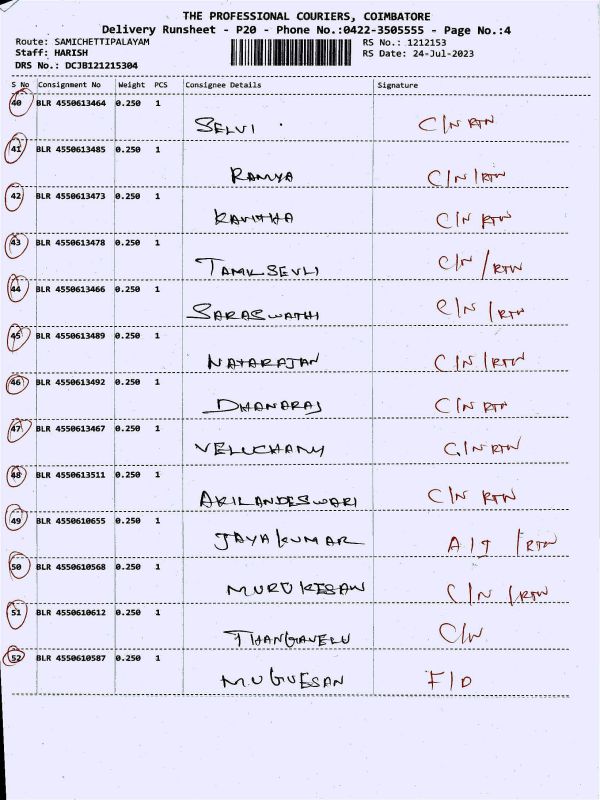 THE PROFESSIONAL COURIERS, COIMBATORE
Delivery Runsheet - P20 - Phone No.:0422-3505555 - Page No.:4
Route: SAMICHETTIPALAYAM RS No.: 1212153
Staff: HARISH RS Date: 24-Jul-2023
DRS No.: DCJB121215304
S No Consignment No Weight PCS Consignee Details Signature
40 BLR 4550613464 0.250 1
SELVI C/N RTN
41 BLR 4550613485 0.250 1
RAMYA C/N/RTN
42 BLR 4550613473 0.250 1
KAVITHA C/N RTN
43 BLR 4550613478 0.250 1
TAMILSEVLI C/N/RTN
44 BLR 4550613466 0.250 1
SARASWATHI C/N/RTN
45 BLR 4550613489 0.250 1
NATARAJAN C/N/RTN
46 BLR 4550613492 0.250 1
DHANARAJ C/N RTN
47 BLR 4550613467 0.250 1
VELUCHAMY C/N RTN
48 BLR 4550613511 0.250 1
AKILANDESWARI C/N RTN
49 BLR 4550610655 0.250 1
JAYAKUMAR /RTN
50 BLR 4550610568 0.250 1
MURUKESAN C/N/RTN
51 BLR 4550610612 0.250 1
THANGAVELU C/N
52 BLR 4550610587 0.250 1
MUGUESAN F/D